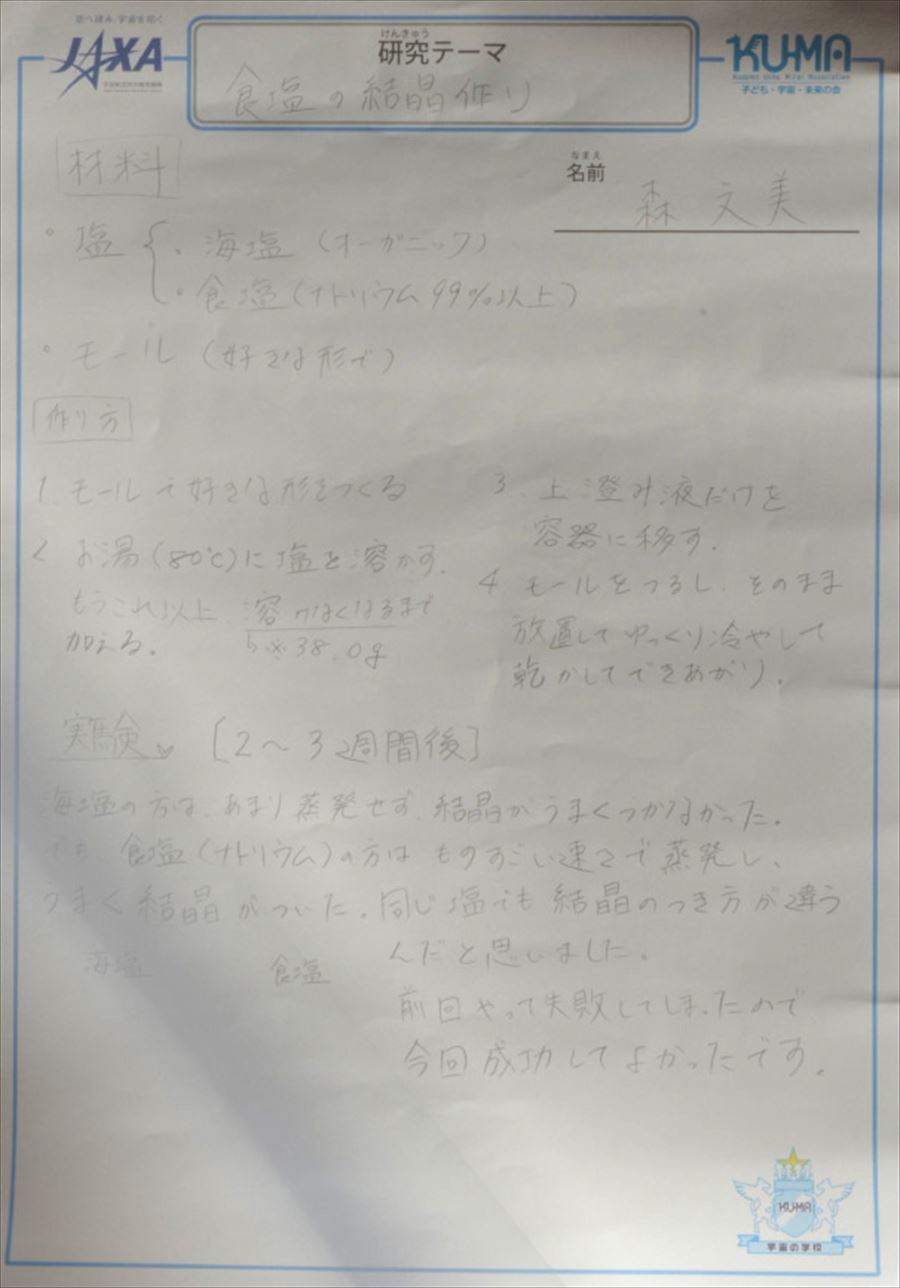 空へ挑み、宇宙を拓く
JAXA
けんきゅう
研究テーマ
食塩の結晶作り
KU-MA
Kodomo Uchu Mirai Association
子ども・宇宙・未来の会
材料
なまえ
名前
森 文美
。塩 { ・海塩(オーガニック)
・食塩(ナトリウム99%以上)
。モール(好きな形で)
作り方
1. モールで好きな形をつくる
2 お湯(80℃)に塩を溶かす.
もうこれ以上、溶けなくなるまで
加える。
※38.0g
3. 上澄み液だけを
容器に移す.
4 モールをつるし、そのまま
放置してゆっくり冷やして
乾かしてできあがり.
実験 [2〜3週間後]
海塩の方は、あまり蒸発せず、結晶がうまくつかなかった.
でも 食塩(ナトリウム)の方は ものすごい速さで蒸発し、
うまく結晶がついた. 同じ塩でも結晶のつき方が違う
んだと思いました.
海塩 食塩
前回やって失敗してしまったので
今回成功してよかったです.
KU-MA
宇宙の学校